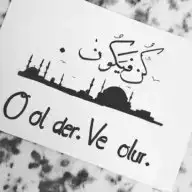 كُنْ فَيَكُونُ
O ol der. Ve olur.